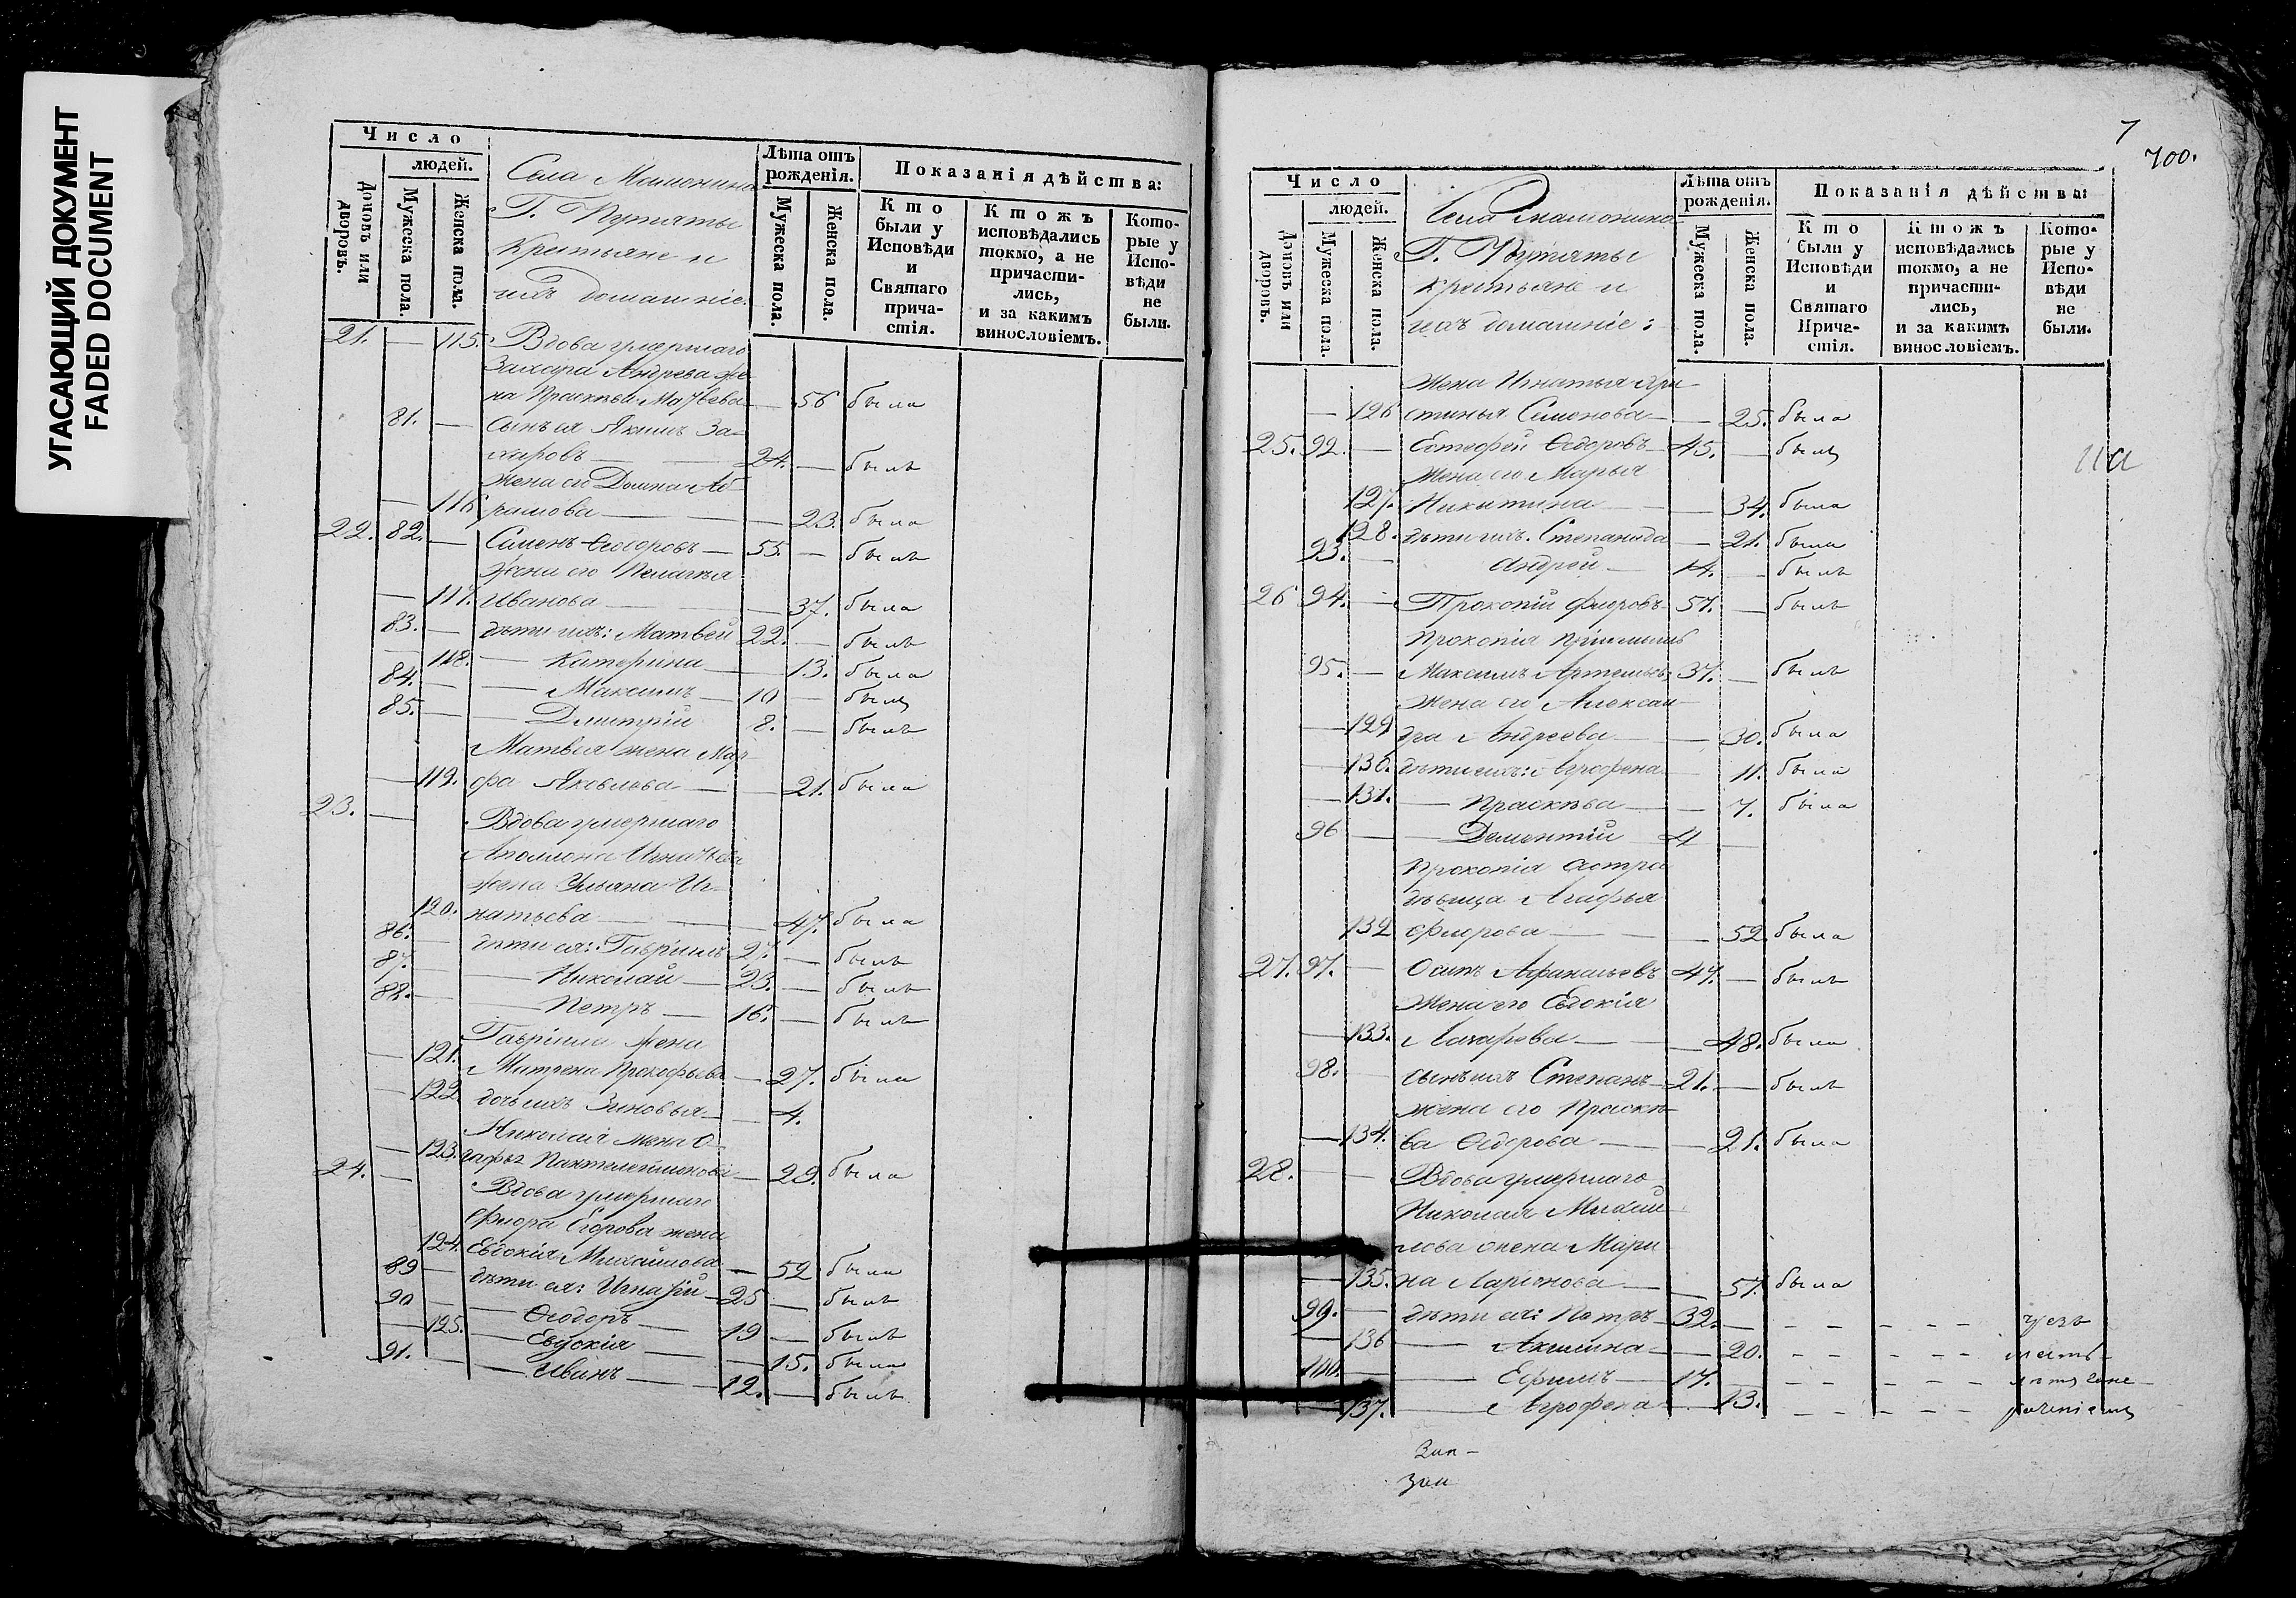 УГАСАЮЩИЙ ДОКУМЕНТ
FADED DOCUMENT
Число
людей.
Домовъ или дворовъ.
Мужеска пола.
Женска пола.
Села
Г. Путяты
Крестьяне и
ихъ домашніе.
Лѣта отъ рожденія.
Мужеска пола.
Женска пола.
Показанія дѣйства:
Кто были у Исповѣди и Святаго причастія.
Ктожъ исповѣдались токмо, а не причастились, и за какимъ винословіемъ.
Которые у Исповѣди не были.
21. — 115. Вдова умершаго
Захара Андреева же-
на Праскѣва Матвева — 56 была
81. — сынъ ея Якимъ За-
харовъ — 24. — былъ
жена его Домна Аб-
— 116 рамова — — 23. была
22. 82. — Семенъ Ѳедоровъ — 55. — былъ
Жена его Пелагея
— 117. Иванова — — 37. была
83. — дѣти ихъ: Матвей 22. — былъ
— 118. — Катерина — 13. была
84. — — Максимъ — 10 — былъ
85. — — Дмитрій 8. — былъ
Матвея жена Мар-
— 119. фа Яковлева — — 21. была
23. — Вдова умершаго
Аполлона Игнатьева
жена Ульяна Иг-
120. натьева — — 47. была
86. — дѣти ея: Гаврiилъ 27. — былъ
87. — — Николай — 23. — былъ
88. — — Петръ — 16. — былъ
Гаврiила жена
— 121. Матрена Прокофьева — 27. была
— 122. дочь ихъ Зиновья — — 4.
Николая жена
— 123. Пантелеймонова — 29. была
24. — Вдова умершаго
Флора Егорова жена
124. Евдокія Михайлова — 52 была
89 — дѣти ея: Игнатій — 25 — былъ
90 — — Ѳеодоръ — 19 — былъ
— 125. — Евдокія — — 15. была
91. — — Иванъ — 12. — былъ
7
700.
Число
людей.
Домовъ или дворовъ.
Мужеска пола.
Женска пола.
Села
Г. Путяты
Крестьяне и
ихъ домашніе:
Лѣта отъ рожденія.
Мужеска пола.
Женска пола.
Показанія дѣйства:
Кто были у Исповѣди и Святаго Причастія.
Ктожъ исповѣдались токмо, а не причастились, и за какимъ винословіемъ.
Которые у Исповѣди не были.
Жена Игнатья Хри-
— 126 стинья Семенова — — 25. была
25. 92. — Ѳедоровъ — 45. — былъ
Жена его Марья
127. Никитина — — 34. была
128. дѣти ихъ. Степанида — 21. была
93. — Андрей — 14. — былъ
26 94. — Прокопій Флоровъ 57. — былъ
Прокопія пріемышъ
95. — Максимъ Артемьевъ 37. — былъ
Жена его Алексан-
— 129 дра Андреева — — 30. была
— 130. дѣти ихъ: Агрофена — 11. была
— 131. — Праскѣва — — 7. была
96 — — Дементій 4 —
Прокопія сестра
дѣвица Агафья
132 Флорова — — 52. была
27. 97. — Осипъ Афанасьевъ 47. — былъ
Жена его Евдокія
— 133. Захарова — — 48. была
98. сынъ ихъ Степанъ — 21. — былъ
жена его Праскѣ-
— 134. ва Ѳедорова — — 21. была
28. — — Вдова умершаго
Николая Михай-
лова жена Мари-
— 135. на Ларіонова — — 57. была
99. — дѣти ея: Петръ — 32. — — — — —
— 136 — Акилина — 20. — — — — —
100. — — Ефимъ — 17. — — — — —
— 137. — Агрофена — 13. — — — — —